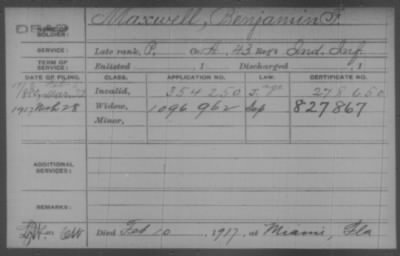 DEAD
SOLDIER: Maxwell, Benjamin F.
SERVICE: Late rank, P. Co. A. 43 Reg't Ind. Inf.
TERM OF SERVICE: Enlisted , 1 Discharged , 1
DATE OF FILING. CLASS. APPLICATION NO. LAW. CERTIFICATE NO.
Invalid, 354 250 278 650
1917 Mch 28 Widow, 1096 962 Sep 827867
Minor,
ADDITIONAL SERVICES:
REMARKS:
Died Feb 10, 1917, at Miami, Fla